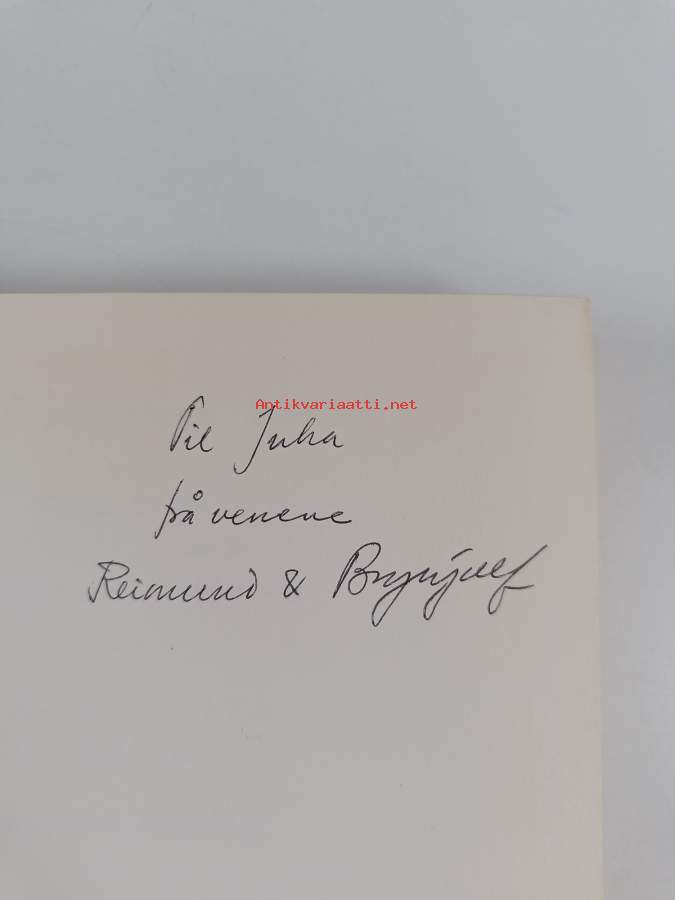 Antikvariaatti.net
Til Juha
frå venene
Reimund & Brynjulf